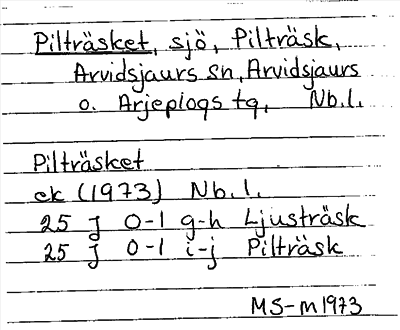 Pilträsket, sjö, Pilträsk,
Arvidsjaurs sn, Arvidsjaurs
o. Arjeplogs tg, Nb.l.
Pilträsket
ek (1973) Nb.l.
25 J 0-1 g-h Ljusträsk
25 J 0-1 i-j Pilträsk
MS-M1973